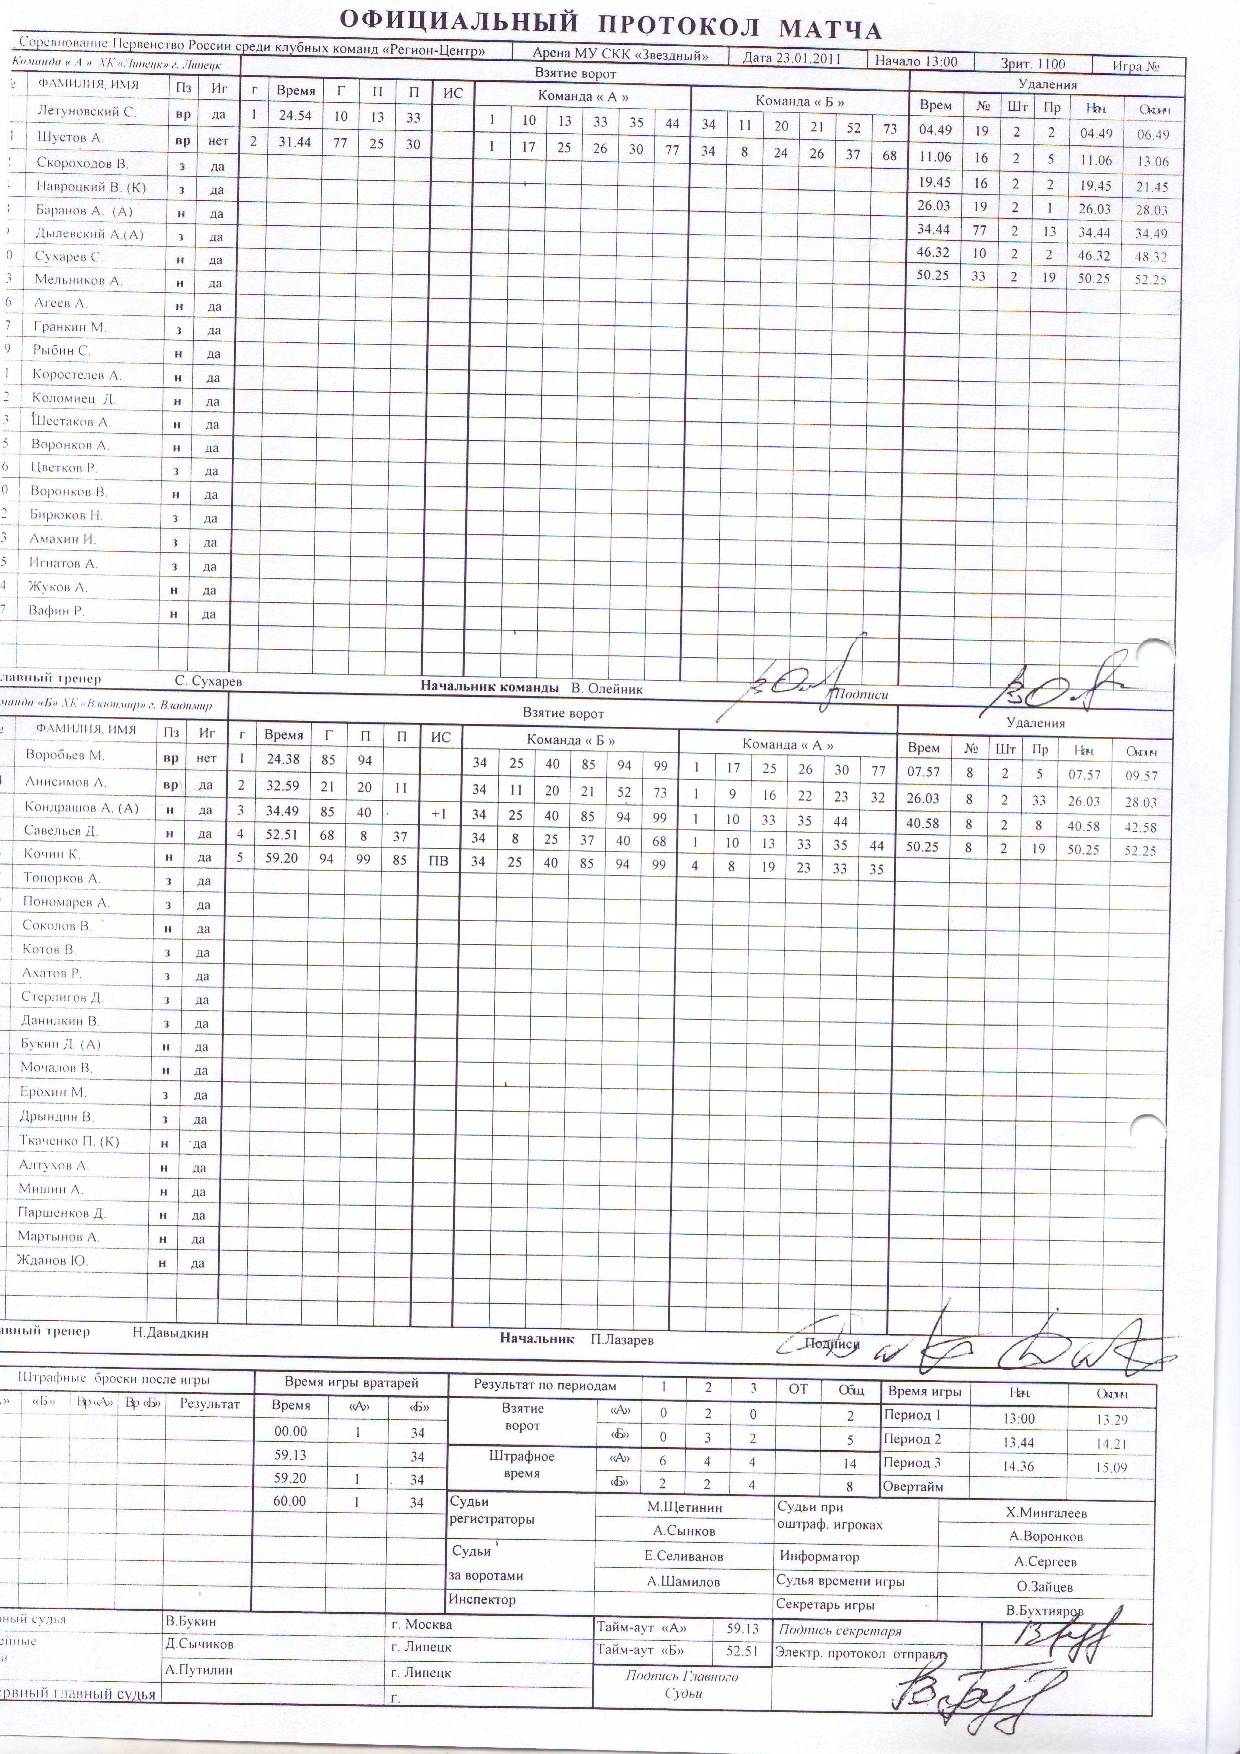 ОФИЦИАЛЬНЫЙ ПРОТОКОЛ МАТЧА
Соревнование Первенство России среди клубных команд «Регион-Центр» Арена МУ СКК «Звездный» Дата 23.01.2011 Начало 13:00 Зрит. 1100 Игра №
Команда « А » ХК «Липецк» г. Липецк Взятие ворот Удаления
ФАМИЛИЯ, ИМЯ Пз Иг г Время Г П П ИС Команда « А » Команда « Б » Врем № Шт Пр Нач. Оконч
Летуновский С. вр да 1 24.54 10 13 33 1 10 13 33 35 44 34 11 20 21 52 73 04.49 19 2 2 04.49 06.49
1 Шустов А. вр нет 2 31.44 77 25 30 1 17 25 26 30 77 34 8 24 26 37 68 11.06 16 2 5 11.06 13.06
Скороходов В. з да 19.45 16 2 2 19.45 21.45
Навроцкий В. (К) з да 26.03 19 2 1 26.03 28.03
Баранов А. (А) н да 34.44 77 2 13 34.44 34.49
Дылевский А.(А) з да 46.32 10 2 2 46.32 48.32
0 Сухарев С. н да 50.25 33 2 19 50.25 52.25
3 Мельников А. н да
6 Агеев А. н да
7 Гранкин М. з да
9 Рыбин С. н да
1 Коростелев А. н да
2 Коломиец Д. н да
3 Шестаков А. н да
5 Воронков А. н да
6 Цветков Р. з да
0 Воронков В. н да
2 Бирюков Н. з да
3 Амахин И. з да
5 Игнатов А. з да
4 Жуков А. н да
7 Вафин Р. н да
лавный тренер С. Сухарев Начальник команды В. Олейник Подписи
манда «Б» ХК «Владимир» г. Владимир Взятие ворот Удаления
ФАМИЛИЯ, ИМЯ Пз Иг г Время Г П П ИС Команда « Б » Команда « А » Врем № Шт Пр Нач. Оконч
Воробьев М. вр нет 1 24.38 85 94 34 25 40 85 94 99 1 17 25 26 30 77 07.57 8 2 5 07.57 09.57
Анисимов А. вр да 2 32.59 21 20 11 34 11 20 21 52 73 1 9 16 22 23 32 26.03 8 2 33 26.03 28.03
Кондрашов А. (А) н да 3 34.49 85 40 +1 34 25 40 85 94 99 1 10 33 35 44 40.58 8 2 8 40.58 42.58
Савельев Д. н да 4 52.51 68 8 37 34 8 25 37 40 68 1 10 13 33 35 44 50.25 8 2 19 50.25 52.25
Кочин К. н да 5 59.20 94 99 85 ПВ 34 25 40 85 94 99 4 8 19 23 33 35
Топорков А. з да
Пономарев А. з да
Соколов В. н да
Котов В. з да
Ахатов Р. з да
Стерлигов Д. з да
Данилкин В. з да
Букин Д. (А) н да
Мочалов В. н да
Ерохин М. з да
Дрындин В. з да
Ткаченко П. (К) н да
Алтухов А. н да
Мишин А. н да
Паршенков Д. н да
Мартынов А. н да
Жданов Ю. н да
авный тренер Н.Давыдкин Начальник П.Лазарев Подписи
Штрафные броски после игры Время игры вратарей Результат по периодам 1 2 3 ОТ Общ Время игры Нач. Оконч
» «Б» Вр «А» Вр «Б» Результат Время «А» «Б» Взятие ворот «А» 0 2 0 2 Период 1 13:00 13.29
00.00 1 34 «Б» 0 3 2 5 Период 2 13.44 14.21
59.13 34 Штрафное время «А» 6 4 4 14 Период 3 14.36 15.09
59.20 1 34 «Б» 2 2 4 8 Овертайм
60.00 1 34 Судьи регистраторы М.Щетинин Судьи при оштраф. игроках Х.Мингалеев
А.Сынков А.Воронков
Судьи за воротами Е.Селиванов Информатор А.Сергеев
А.Шамилов Судья времени игры О.Зайцев
Инспектор Секретарь игры В.Бухтияров
ный судья В.Букин г. Москва Тайм-аут «А» 59.13 Подпись секретаря
Д.Сычиков г. Липецк Тайм-аут «Б» 52.51 Электр. протокол отправл
А.Путилин г. Липецк Подпись Главного Судьи
рвный главный судья г.